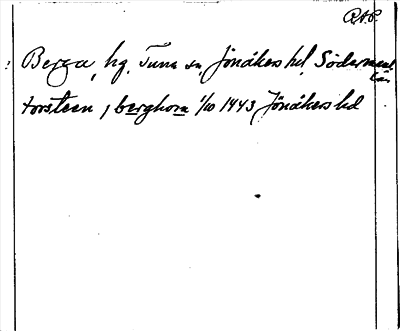 RAP
Berga, hg. Tuna sn Jönåkers hd, Södermanl. län
torsteen j berghom 1/10 1443 Jönåkers hd